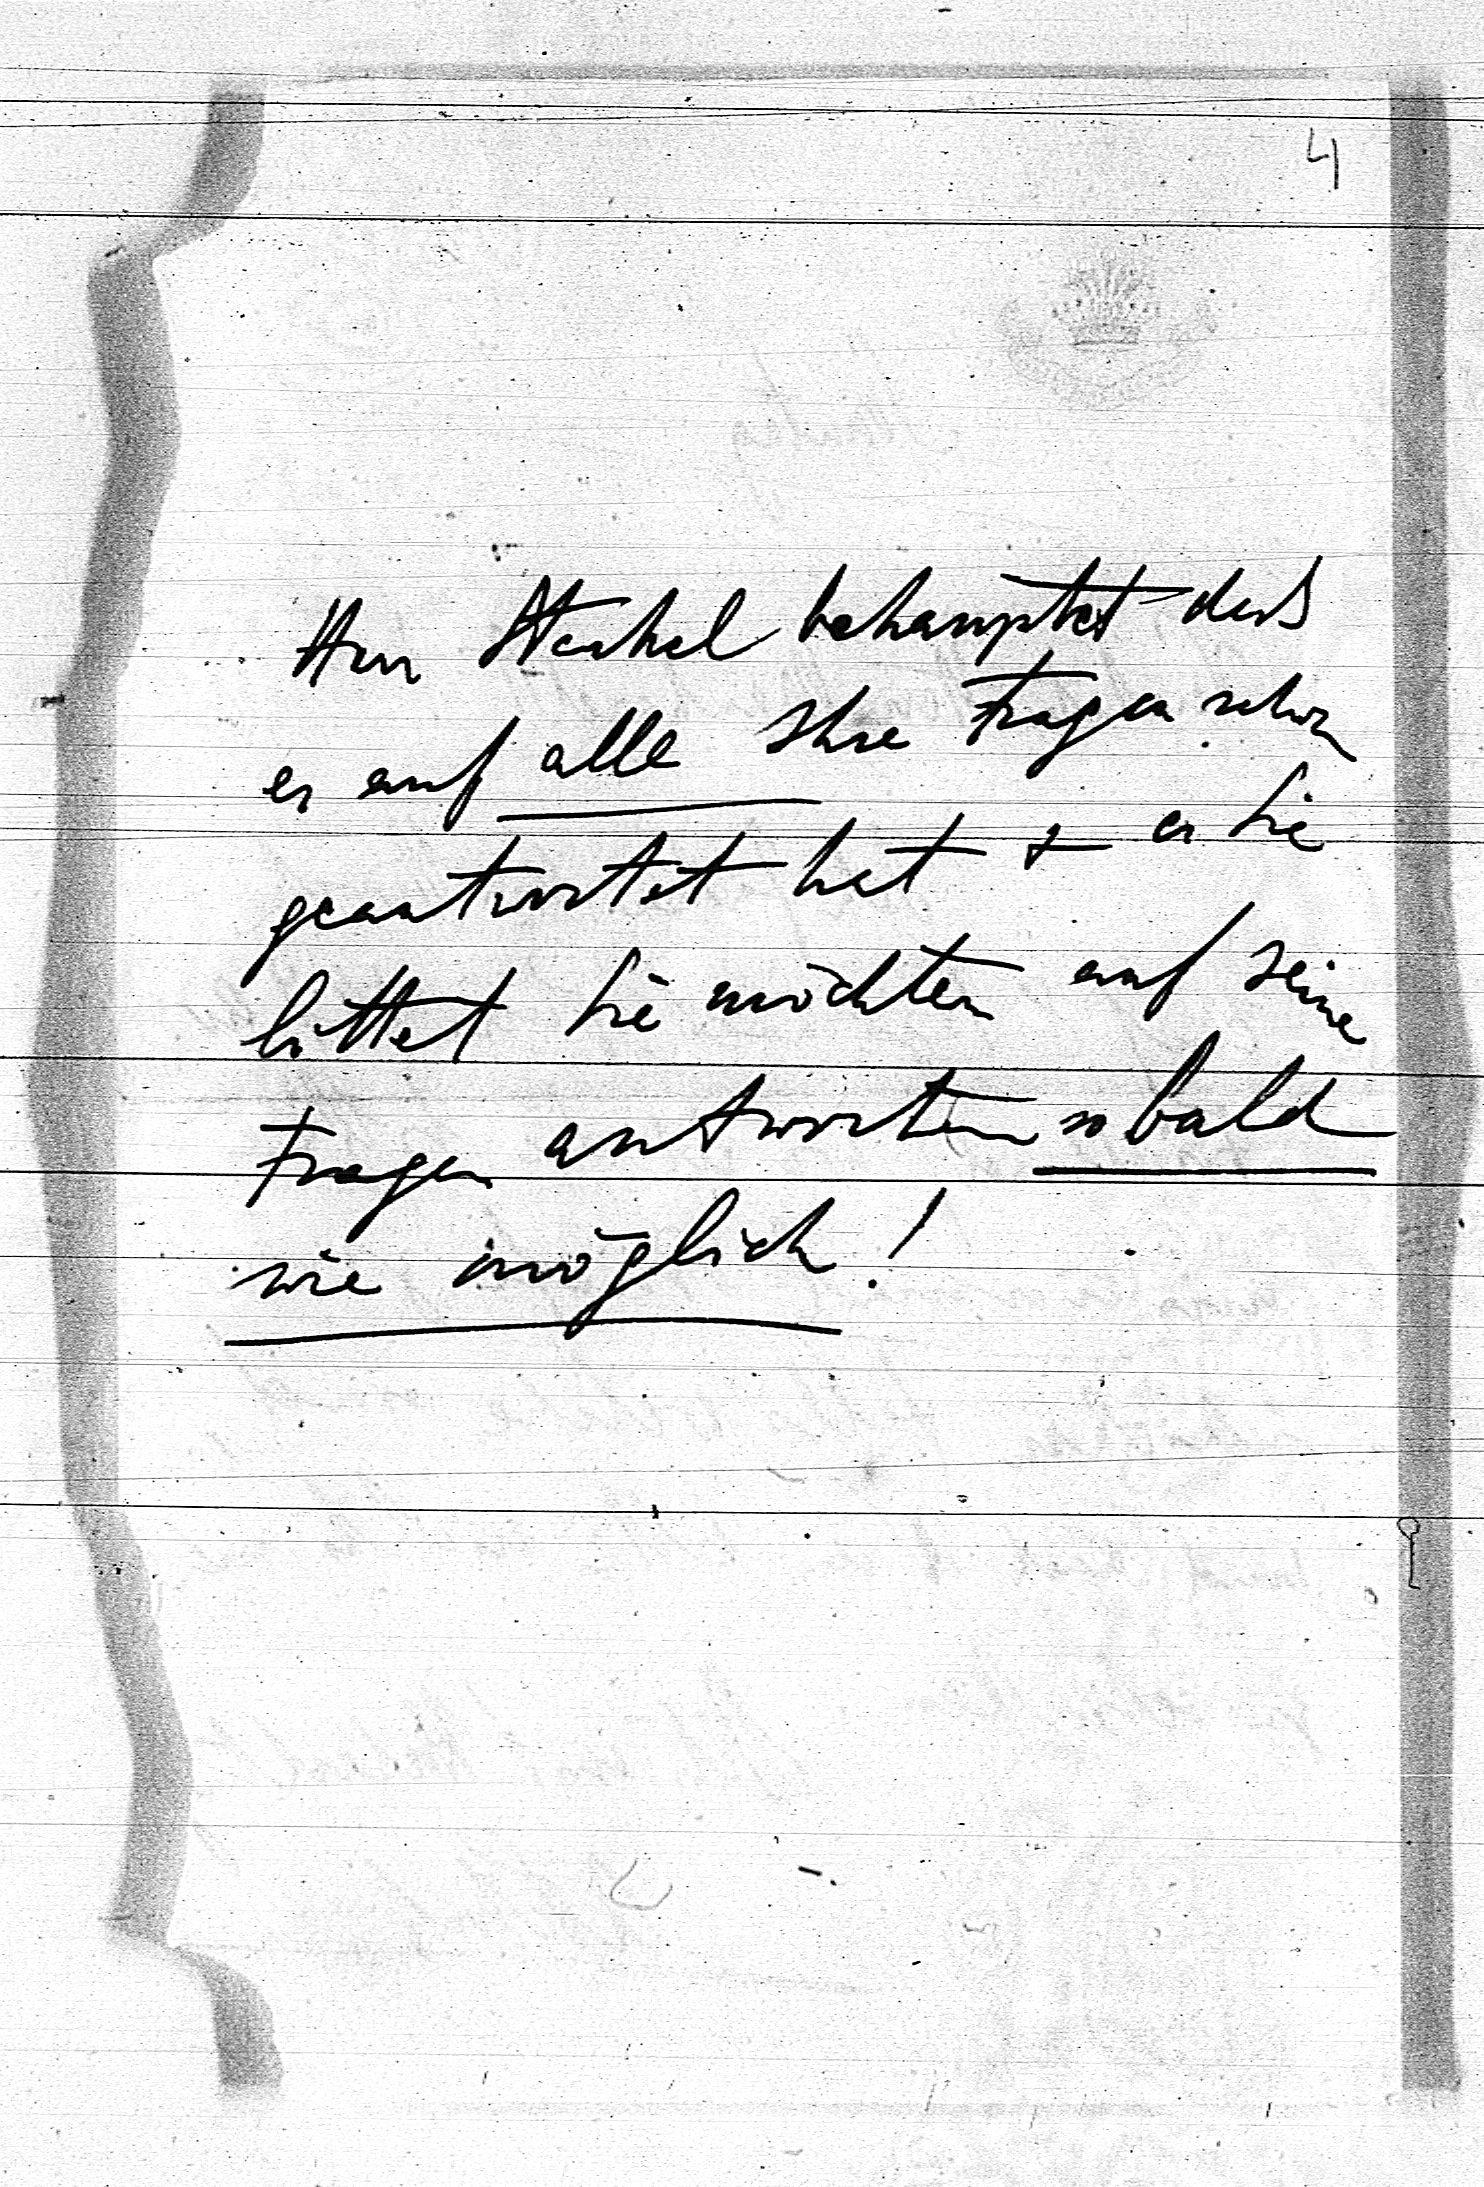 4
Herr Steckel behauptet dass
er auf alle Ihre Fragen schon
geantwortet hat + er Sie
bittet Sie möchten auf seine
Fragen antworten so bald
wie möglich!